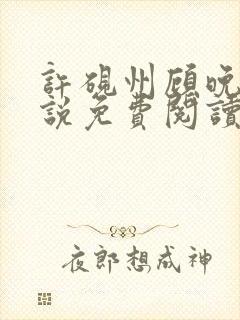 許硯州顧晚
說免費閱讀
夜郎想成神